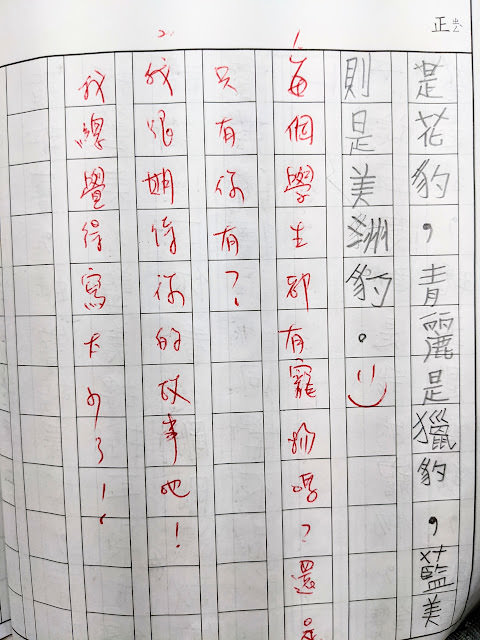 是花豹，青麗是獵豹，藍美
則是美洲豹。
1.
每個學生都有寵物嗎？還是
只有你有？
2.
我很期待你的故事吔！
我總覺得寫太少了！
正